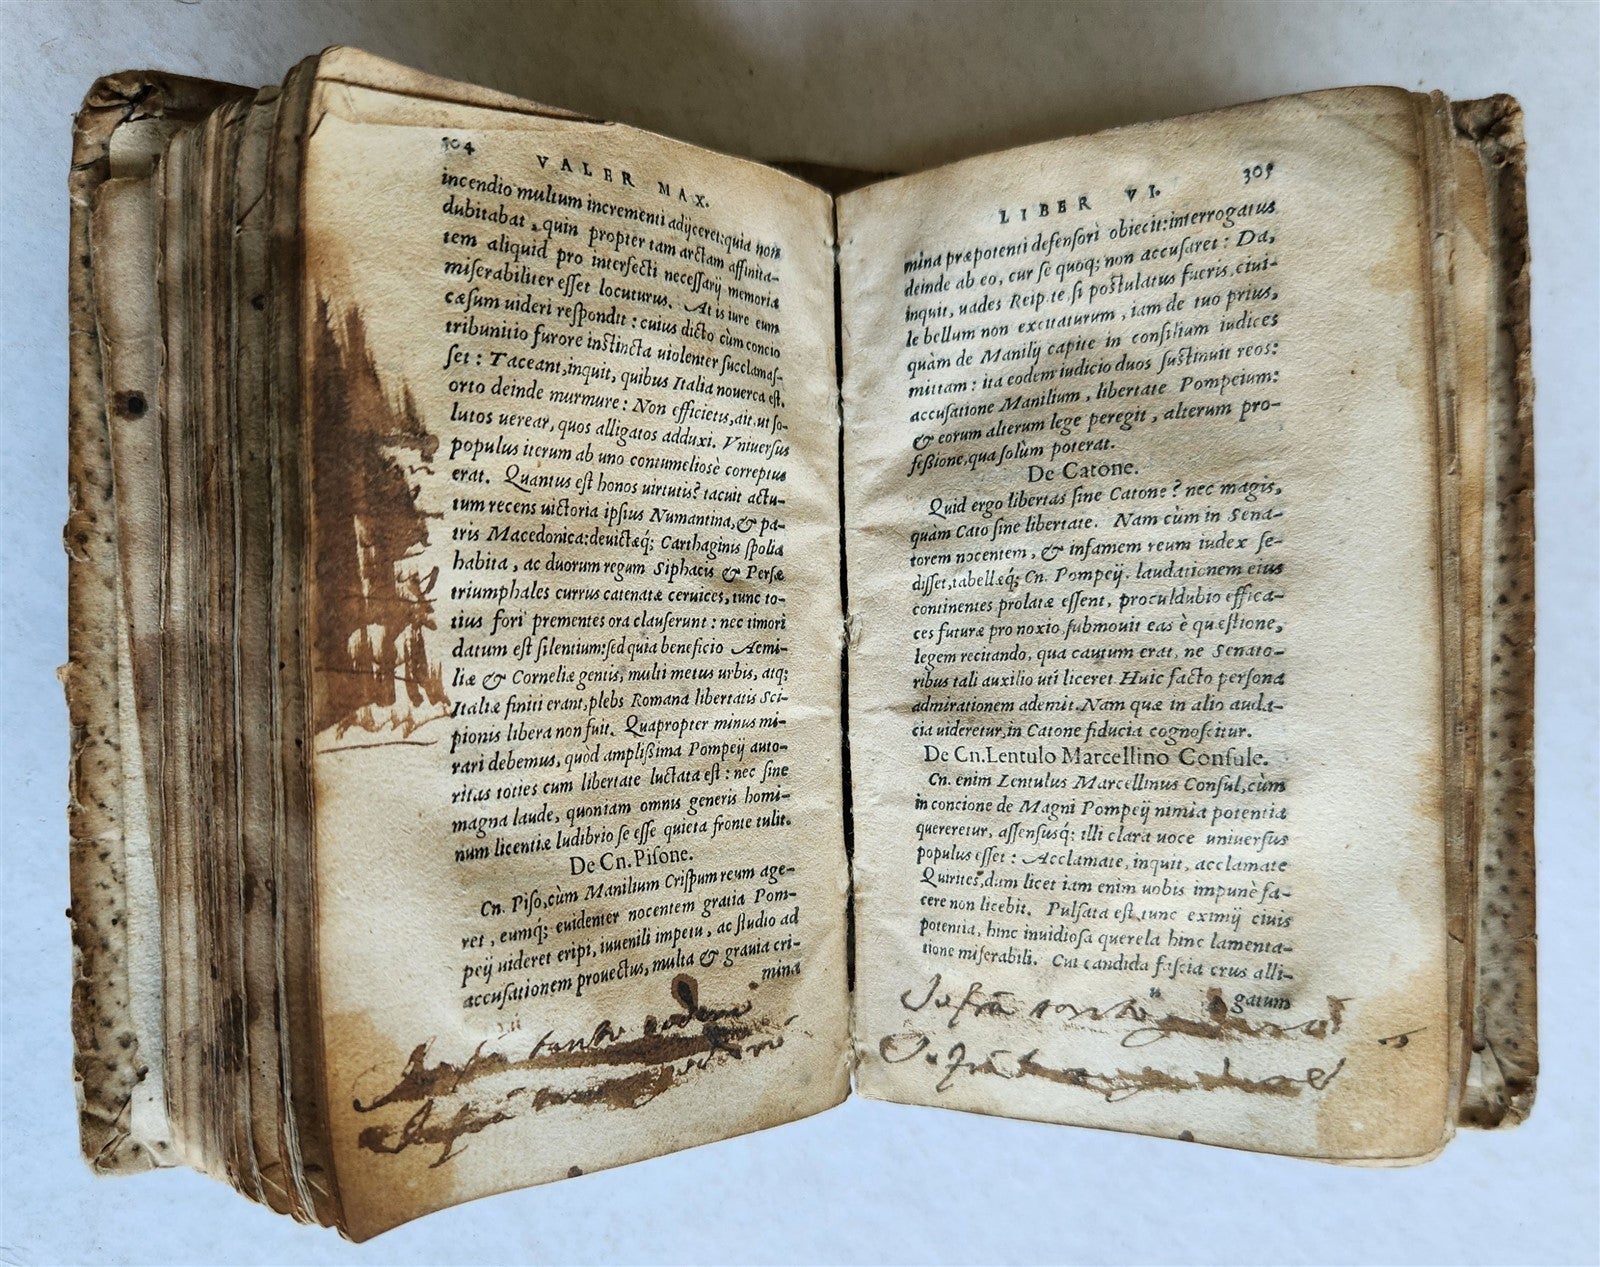 304 VALER MAX.
incendio multum incrementi adijceret: quia non
dubitabat, quin propter tam arctam affinita-
tem aliquid pro interfecti necessarij memoria
miserabiliter esset locuturus. At is iure eum
cæsum uideri respondit: cuius dicto cùm concio
tribunitio furore instincta uiolenter succlamas-
set: Taceant, inquit, quibus Italia nouerca est.
orto deinde murmure: Non efficietis, ait, ut so-
lutos uerear, quos alligatos adduxi. Vniuersus
populus iterum ab uno contumeliosè correptus
erat. Quantus est honos uirtutis? tacuit actu-
tum recens uictoria ipsius Numantina, & pa-
tris Macedonica: deuictæq; Carthaginis spolia
habita, ac duorum regum Siphacis & Persæ
triumphales currus catenatæ ceruices, tunc to-
tius fori prementes ora clauserunt: nec timori
datum est silentium: sed quia beneficio Aemi-
liæ & Corneliæ gentis, multi metus urbis, atq;
Italiæ finiti erant, plebs Romana libertatis Sci-
pionis libera non fuit. Quapropter minus mi-
rari debemus, quòd amplißima Pompeij auto-
ritas toties cum libertate luctata est: nec sine
magna laude, quoniam omnis generis homi-
num licentiæ ludibrio se esse quieta fronte tulit.
De Cn. Pisone.
Cn. Piso, cùm Manilium Crispum reum age-
ret, eumq; euidenter nocentem gratia Pom-
peij uideret eripi, iuuenili impetu, ac studio ad
accusationem prouectus, multa & grauia cri-
mina
LIBER VI. 305
mina præpotenti defensori obiecit: interrogatus
deinde ab eo, cur se quoq; non accusaret: Da,
inquit, uades Reip. te, si postulatus fueris, ciui-
le bellum non excitaturum, iam de tuo prius,
quàm de Manilij capite in consilium iudices
mittam: ita eodem iudicio duos sustinuit reos:
accusatione Manilium, libertate Pompeium:
& eorum alterum lege peregit, alterum pro-
feßione, qua solùm poterat.
De Catone.
Quid ergo libertas sine Catone? nec magis,
quàm Cato sine libertate. Nam cùm in Sena-
torem nocentem, & infamem reum iudex se-
disset, tabellæq; Cn. Pompeij. laudationem eius
continentes prolatæ essent, proculdubio effica-
ces futuræ pro noxio, submouit eas è quæstione,
legem recitando, qua cautum erat, ne Senato-
ribus tali auxilio uti liceret. Huic facto persona
admirationem ademit. Nam quæ in alio auda-
cia uideretur, in Catone fiducia cognoscitur.
De Cn. Lentulo Marcellino Consule.
Cn. enim Lentulus Marcellinus Consul, cùm
in concione de Magni Pompeij nimia potentia
quereretur, assensusq́; illi clara uoce uniuersus
populus esset: Acclamate, inquit, acclamate
Quirites, dum licet iam enim uobis impunè fa-
cere non licebit. Pulsata est tunc eximij ciuis
potentia, hinc inuidiosa querela hinc lamenta-
tione miserabili. Cui candida fascia crus alli-
u gatum